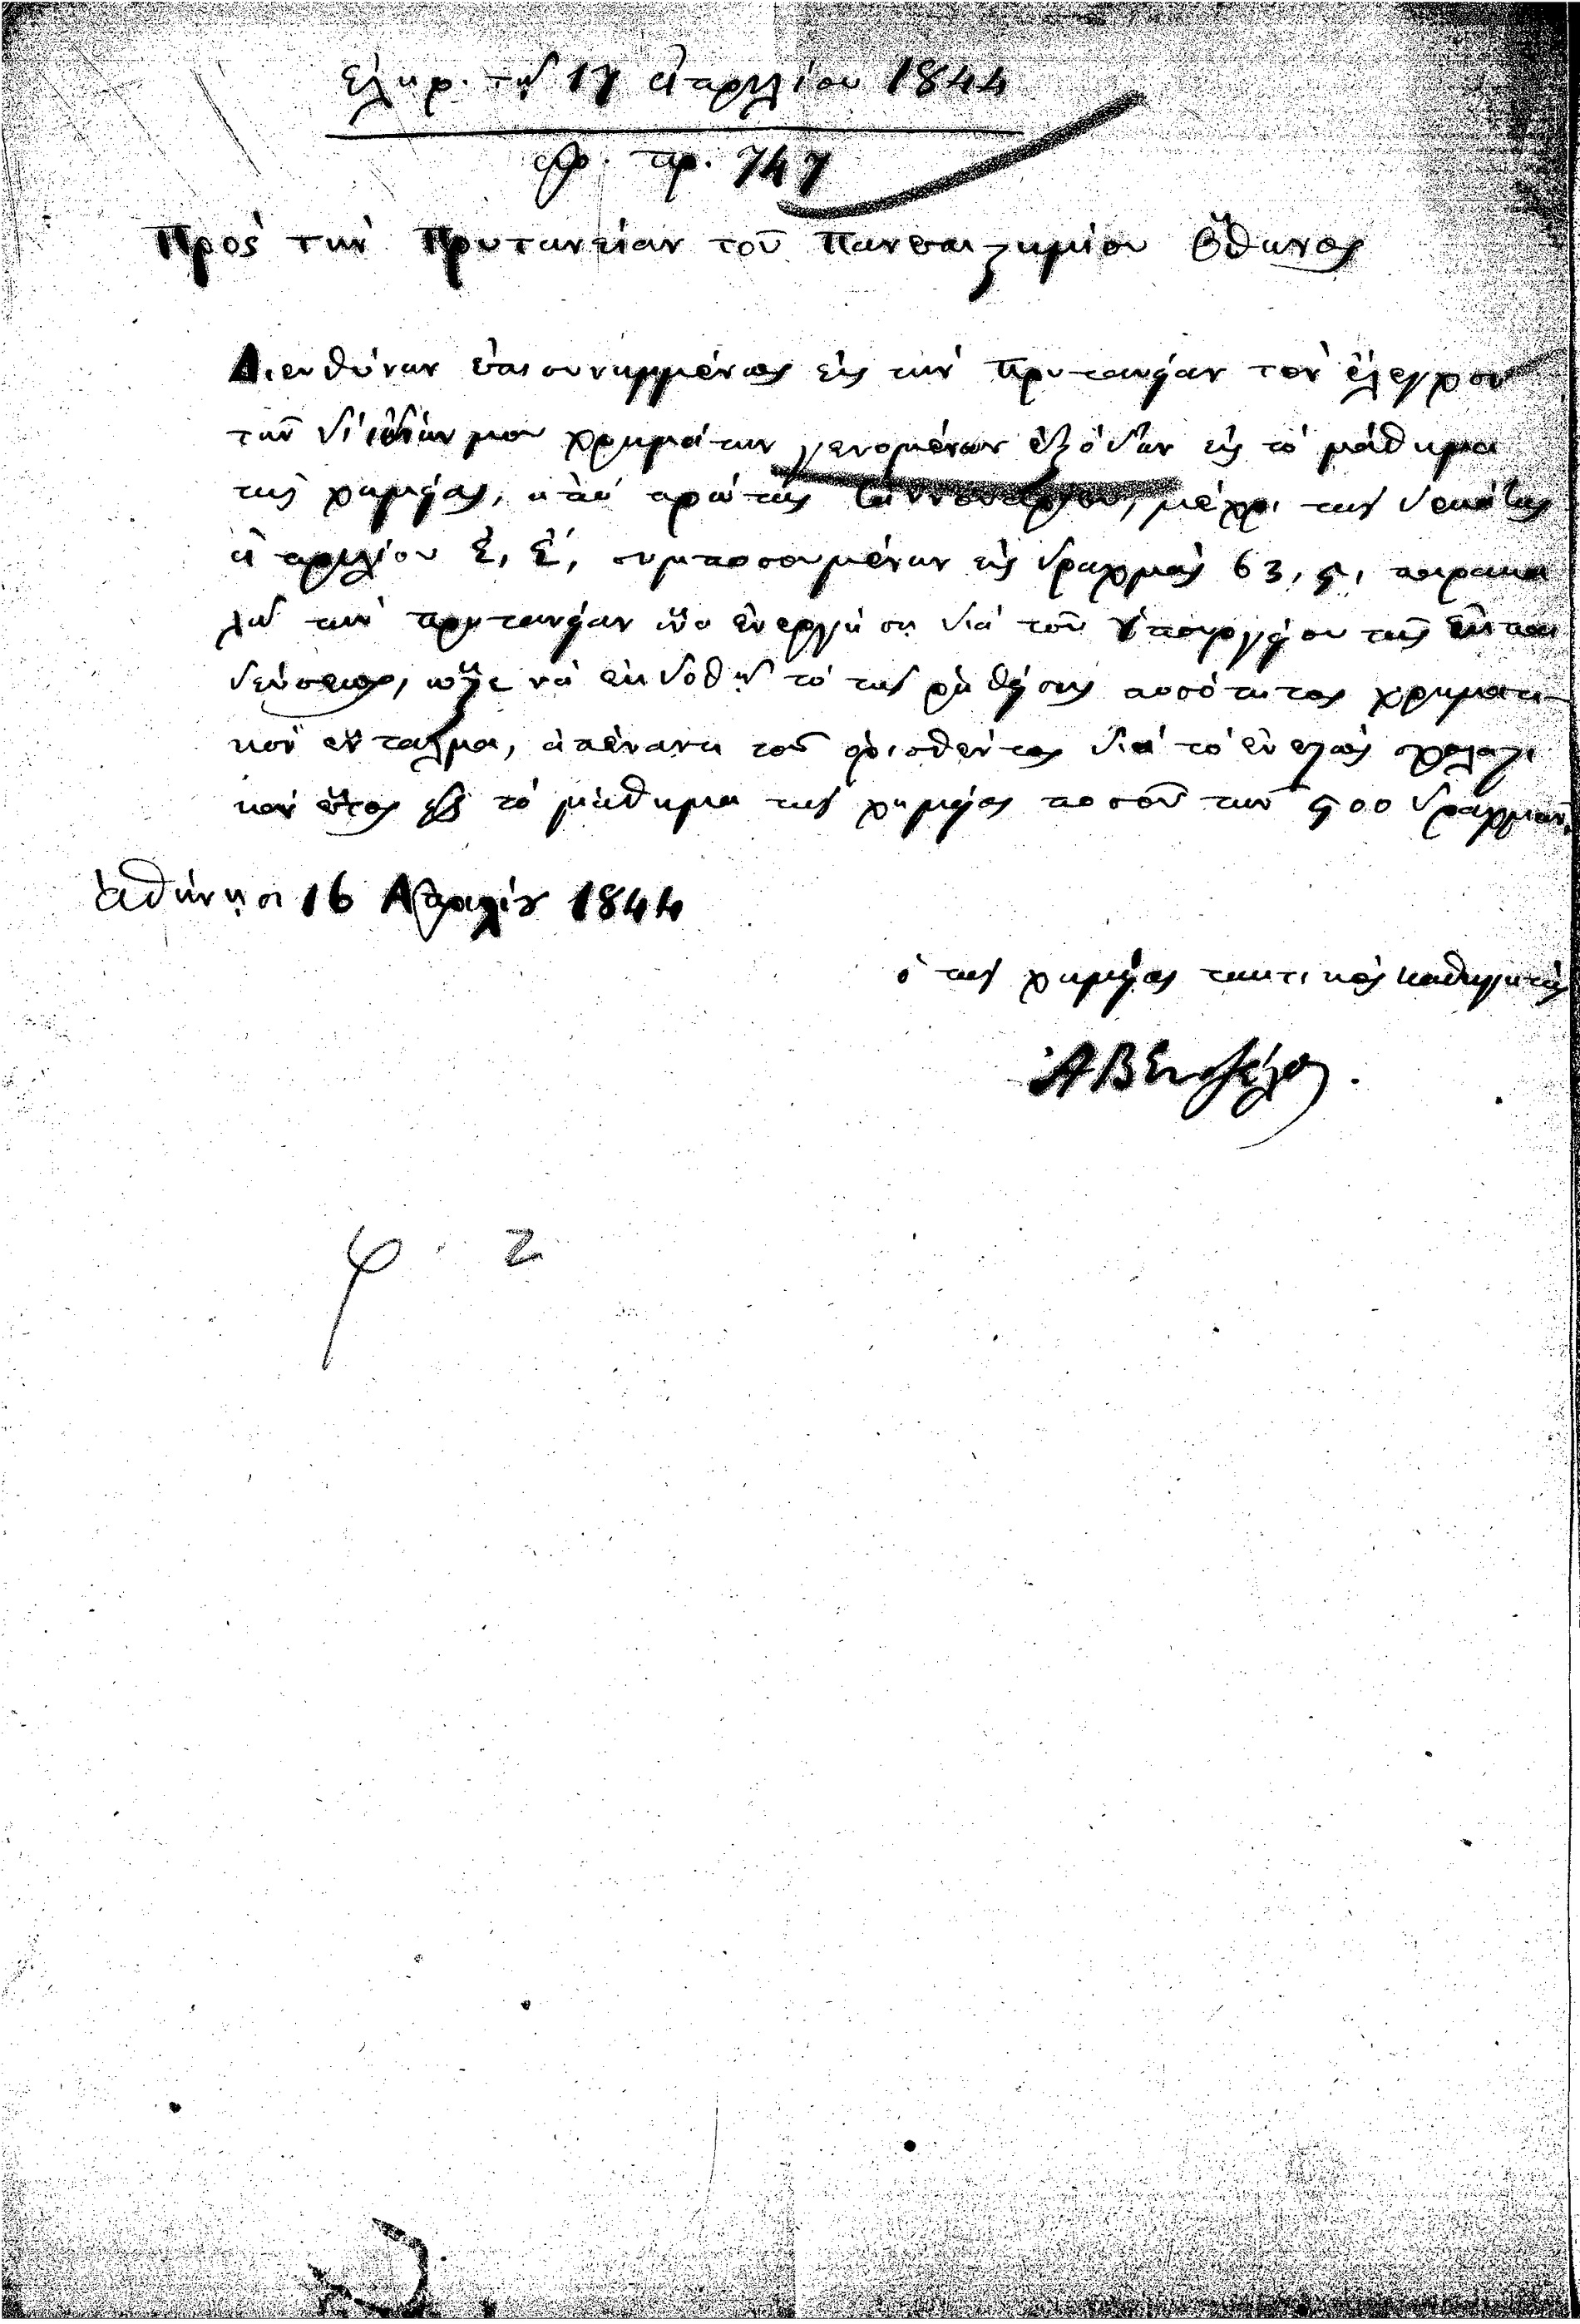 ἐλήφ. τῇ 17 ἀπριλίου 1844
ἀρ. πρ. 747
Πρὸς τὴν Πρυτανείαν τοῦ Πανεπιστημίου Ὄθωνος
Διευθύνων ἐπισυνημμένως εἰς τὴν Πρυτανείαν τὸν ἔλεγχον
τῶν δι' ἰδίων μου χρημάτων γενομένων ἐξόδων εἰς τὸ μάθημα
τῆς χημείας, ἀπὸ πρώτης Ἰαννουαρίου, μέχρι τῆς δεκάτης
ἀπριλίου ἐ. ἔ., συμποσουμένων εἰς δραχμὰς 63, 5, παρακα
λῶ τὴν πρυτανείαν ἵνα ἐνεργήσῃ διὰ τοῦ Ὑπουργείου τῆς ἐκπαι
δεύσεως, ὥστε νὰ ἐκδοθῇ τὸ τῆς ῥηθείσης ποσότητος χρηματι-
κὸν ἔνταλμα, ἀπέναντι τοῦ ὁρισθέντος διὰ τὸ ἐνεστὼς σχολαστι
κὸν ἔτος εἰς τὸ μάθημα τῆς χημείας ποσοῦ τῶν 500 δραχμῶν.
Ἀθήνησι 16 Ἀπριλίου 1844
ὁ τῆς χημείας τακτικὸς καθηγητὴς
φ 2